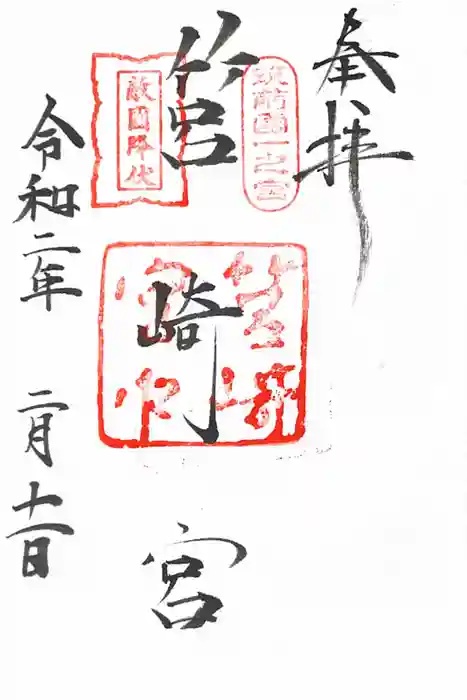 奉拝
筑前國一之宮
筥崎宮
敵國降伏
筥崎宮印
令和二年 二月十一日